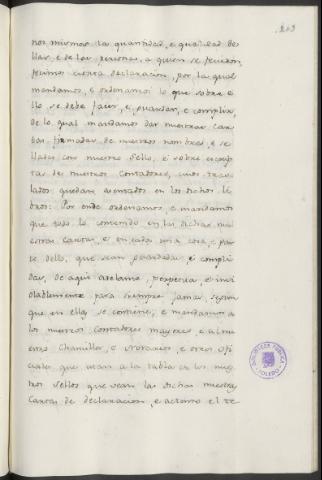 203
nos mismos la quantidad, e qualidad de
llas, e de las personas a quien se
fecimos cierta declaracion, por la qual
mandamos, e ordenamos lo que sobre e
llo se debe facer, e guardar, e complir,
de lo qual mandamos dar nuestras car
tas firmadas de nuestros nombres, e se
lladas con nuestro sello, e sobre escrip
tas de nuestros Contadores, cuios tras
lados quedan asentados en los dichos li
bros: Por ende ordenamos, e mandamos
que todo lo contenido en las dichas nu
estras Cartas, e en cada una cosa, e par
te dello, que sean guardadas, e compli
das, de aqui adelante, perpetua, e invi
olablemente para siempre jamas, segun
que en ellas se contiene, e mandamos a
los nuestros Contadores mayores e al nu
estro Chanciller, e Notarios, e otros ofi
ciales que estan a la tabla de los nues
tros sellos que vean las dichas nuestras
Cartas de declaracion, e actento el te
BIBLIOTECA PUBLICA
TOLEDO